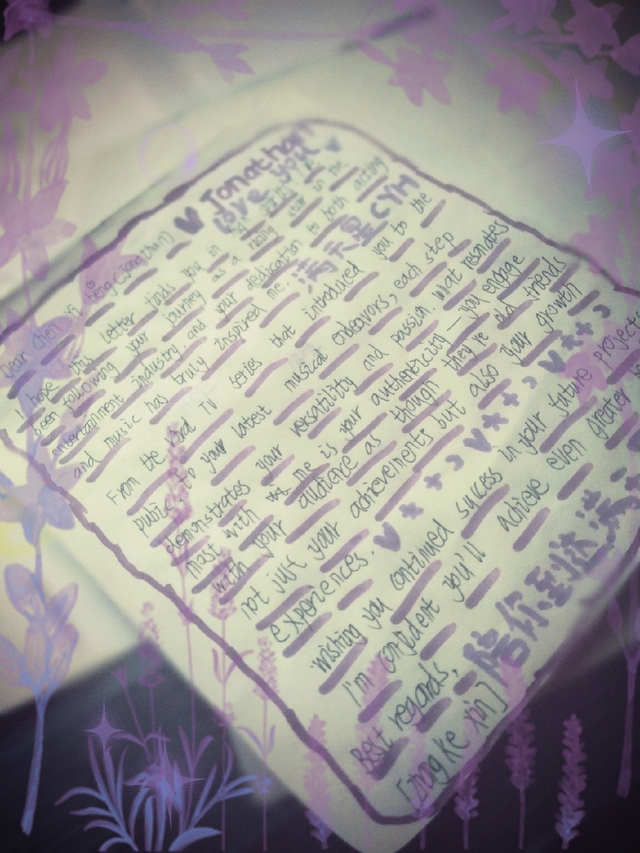 ♥ Jonathan
love you ♥
满天星 CYH
Dear Chen Yi Feng (Jonathan)
I hope this letter finds you in
been following your journey as a rising star in the
entertainment industry, and your dedication to both acting
and music has truly inspired me.
From the TV series that introduced you to the
public to your latest musical endeavors, each step
demonstrates your versatility and passion. What resonates
most with me is your authenticity — you engage
with your audience as though they're old friends
not just your achievements but also your growth
experiences.
Wishing you continued success in your future projects
I'm confident you'll achieve even greater
Best regards,
[ke xin]
陪你到